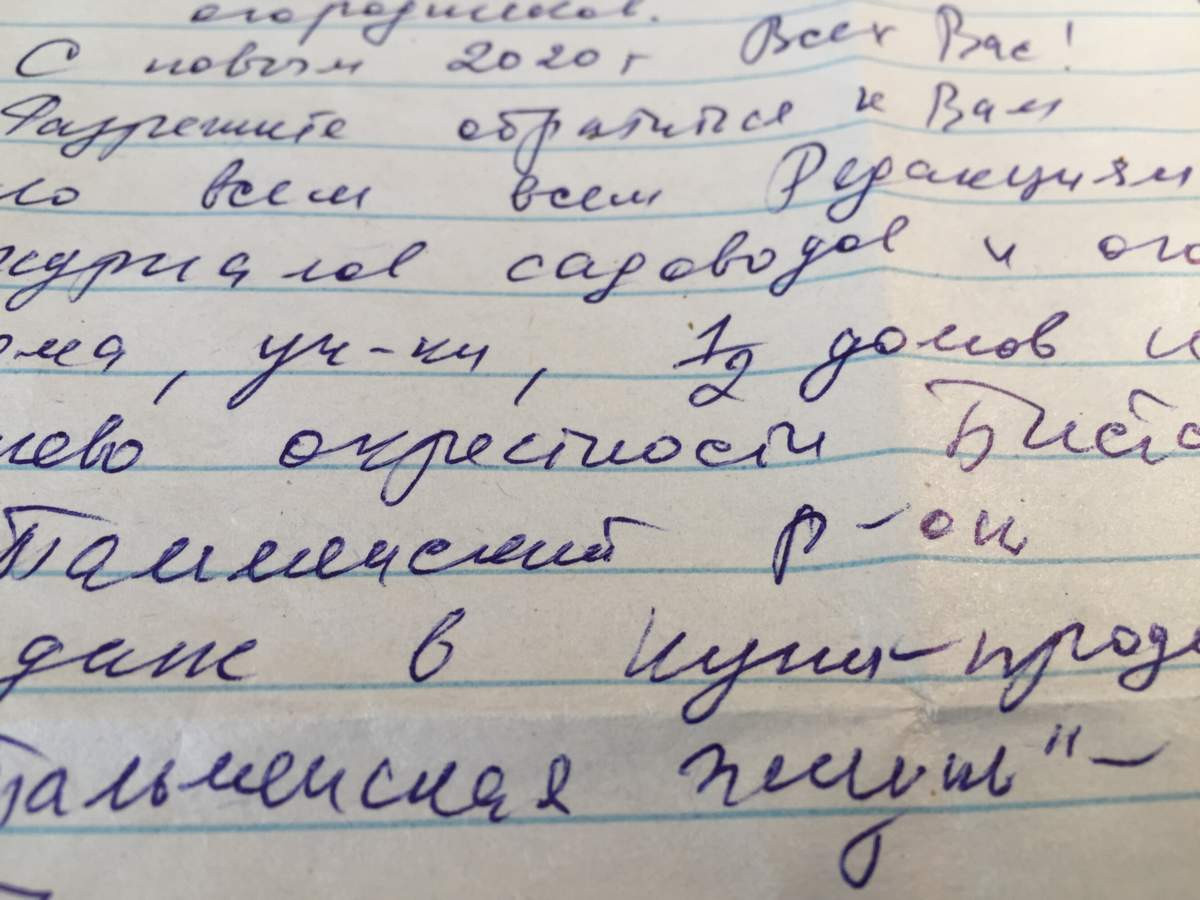 огородников.
С новым 2020 г Всех Вас!
Разрешите обратиться к Вам
по всем всем Редакциям
журналов садоводов и ого
ома, уч-ки, 1/2 домов и
ново окрестности
р-он
даж в купи-прода
тальменская жизнь" -